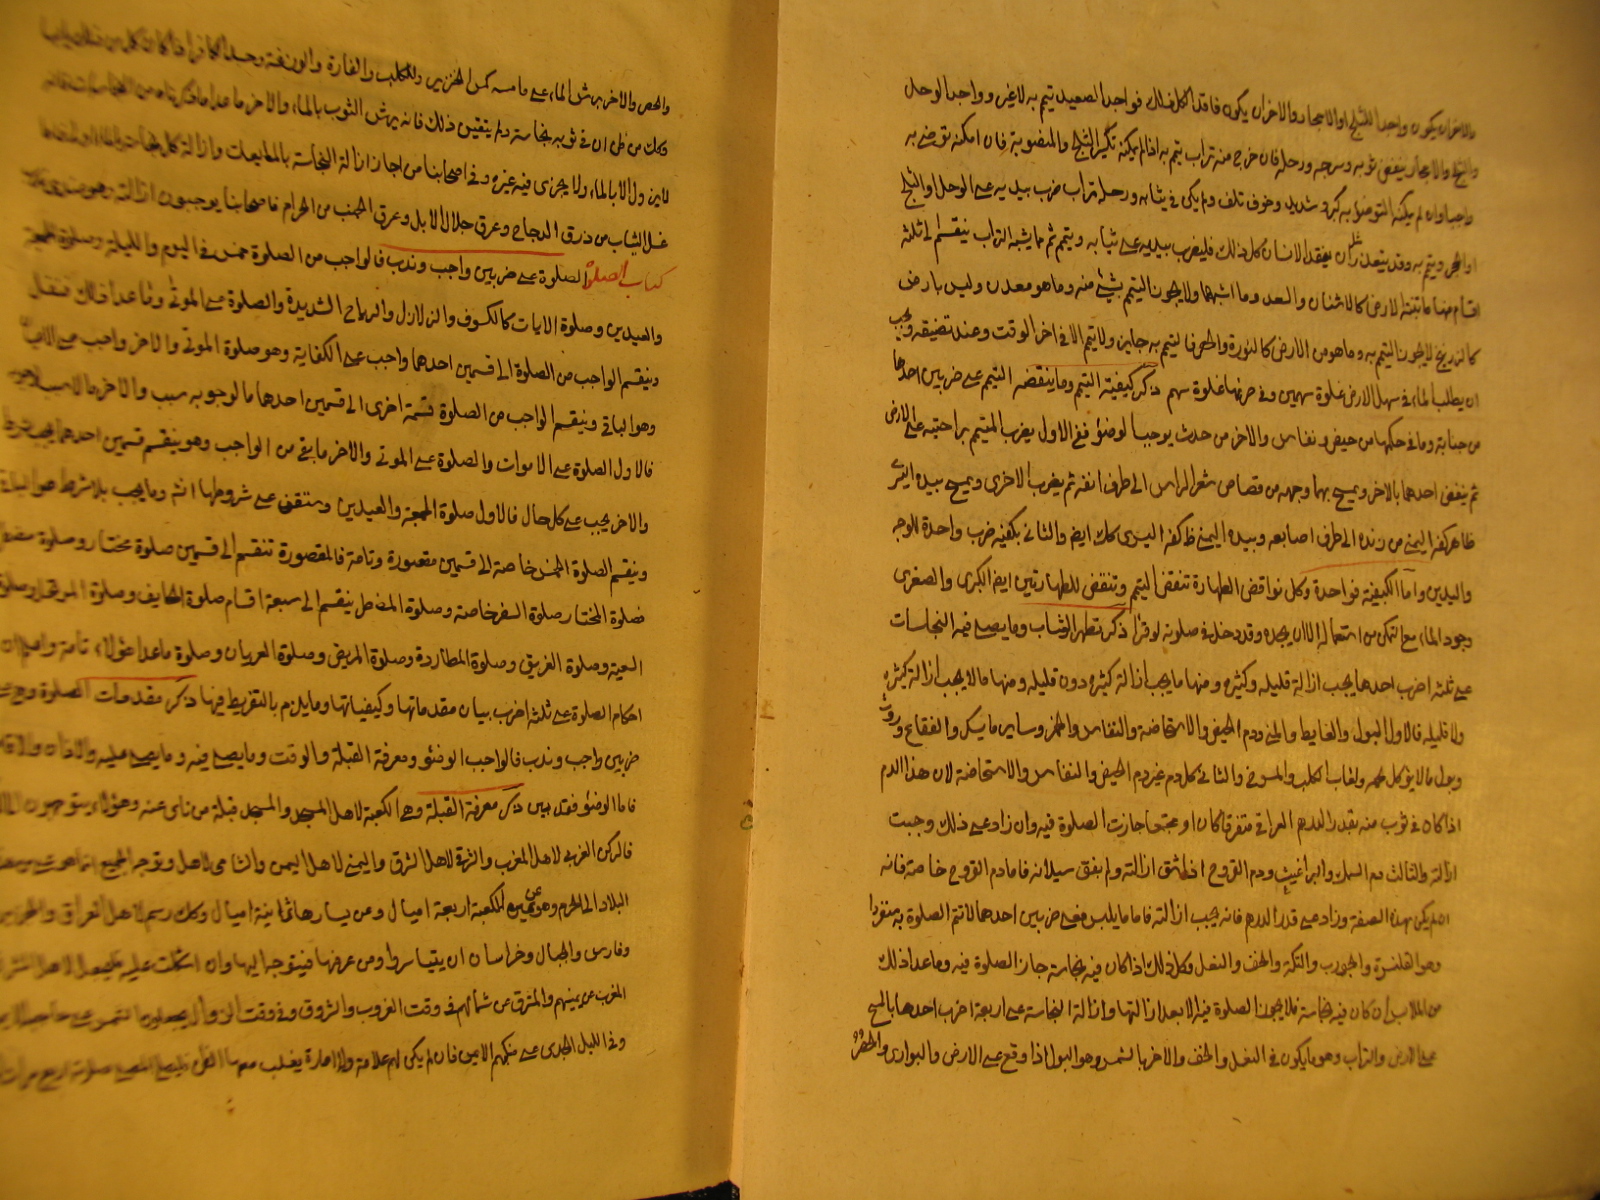 والآخر ان يكون واجدا للثلج او الاحجار والاخر ان يكون فاقدا لكل ذلك فواجد الصعيد تيمم به لا غير وواجد الوحل
والثلج والاحجار ينفض ثوبه وسرجه ورحله فان خرج منه تراب يتيمم به اذا لم يمكنه تكسير الثلج والمتضوء به فان امكنه توضىء به
واجبا وان لم يمكنه التوضؤ به لبرد شديد وخوف تلف ولم يكن في ثيابه ورحله تراب ضرب بيديه على الوحل او الثلج
او الحجر ويتيمم به وقد يتعذر بان يفقد الانسان كل ذلك فليضرب بيديه على ثيابه ويتيمم ثم ما يشبه التراب ينقسم الى ثلثة
اقسام منها ما تنبته الارض كالاشنان والسعد وما اشبهها ولا يجوز التيمم بشئ منه وما هو معدن وليس بارض
كالزرنيخ لا يجوز التيمم به وما هو من الارض كالنورة والجص فالتيمم به جايز ولا يتيمم الا في آخر الوقت وعند تضيقه ويجب
ان يطلب الماء في سهل الارض غلوة سهمين وفي حزنها غلوة سهم ذكر كيفية التيمم وما ينقضه التيمم على ضربين احدهما
من جنابة وما في حكمها من حيض ونفاس والاخر من حدث يوجب الوضؤ ففي الاول يضرب المتيمم براحتيه على الارض
ثم ينفض احدهما بالاخر ويمسح بهما وجهه من قصاص شعر الراس الى طرف انفه ثم يضرب الاخرى ويمسح بيده اليسرى
ظاهر كفه اليمنى من زنده الى طرف اصابعه وبيده اليمنى ظ كفه اليسرى كك ايضا والثاني يكفيه ضرب واحدة للوجه
واليدين واما الكيفية فواحدة وكل نواقض الطهارة تنقض التيمم وتنقض للطهارتين ايضا الكبرى والصغرى
وجود الماء مع التمكن من استعماله الا ان يجده وقد دخل في صلوته لو قرا ذكر تطهر الثياب وما يصلى فيه النجاسات
على ثلثه اضرب احدها يجب ازالة قليله وكثيره ومنها ما يجب ازالة كثيره دون قليله ومنها ما لا يجب ازالة كثيره
ولا قليله فالاول البول والغايط والمنى ودم الحيض والاستحاضة والنفاس والخمر وساير ما يسكر والفقاع وروث
وبول ما لا يؤكل لحمه ولعاب الكلب والمسوخ والثاني كل دم غير دم الحيض والنفاس والاستحاضة لان هذا الدم
اذا كان في ثوب منه بقدر الدرهم العراقي متفرقا كان او مجتمعا جازت الصلوة فيه وان زاد على ذلك وجبت
ازالته والثالث دم السمك والبراغيث ودم القروح اذا شق ازالته ولم يفق سيلانه فاما دم القروح خاصة فانه
ان لم يكن بهذه الصفة وزاد على قدر الدرهم فانه يجب ازالته فاما ما يلبس فعلى ضربين احدهما لا تتم الصلوة به منفردا
وهو القلنسوة والجورب والتكة والخف والنعل وكل ذلك اذا كان فيه نجاسة جاز الصلوة فيه وما عدا ذلك
من الملابس ان كان فيه نجاسة فلا يجوز الصلوة فيه الا بعد ازالتها وازالة النجاسة على اربعة اضرب احدها بالمسح
على الارض والتراب وهو ما يكون في النعل والخف والاخر بالشمس وهو البول اذا وقع على الارض والبوارى والحصر
والحصر والاخر برش الماء على ما مسه كمس الخنزير والكلب والفارة والوزغة وجسد الكافر اذا كان كل من
وكك من ظن ان في ثوبه نجاسة ولم يتيقن ذلك فانه يرش الثوب بالماء والاخر ما عدا ما ذكرناه من النجاسات فانه
لا يزول الا بالماء ولا يجزى فيه غيره وفي اصحابنا من اجاز ازالة النجاسة بالمايعات وازالة كل
غسل الثياب من ذرق الدجاج وعرق جلال الابل وعرق الجنب من الحرام فاصحابنا يوجبون ازالته وهو عندى
كتاب الصلوة الصلوة على ضربين واجب وندب فالواجب من الصلوة خمس في اليوم والليلة وصلوة الجمعة
والعيدين وصلوة الايات كالكسوف والزلازل والرياح الشديدة والصلوة على الموتى وما عدا ذلك فنفل
وينقسم الواجب من الصلوة الى قسمين احدهما واجب على الكفاية وهو صلوة الموتى والاخر واجب على
وهو الباقي وينقسم الواجب من الصلوة قسمة اخرى الى قسمين احدهما ما لوجوبه سبب والاخر ما لا سبب لوجوبه
فالاول الصلوة على الاموات والصلوة على الموتى والاخر ما بقى من الواجب وهو ينقسم قسمين احدهما يجب بشرط
والاخر يجب على كل حال فالاول صلوة الجمعة والعيدين وستقف على شروطها انش وما يجب بلا شرط هو
وينقسم الصلوة الخمس خاصة الى قسمين مقصورة وتامة فالمقصورة تنقسم الى قسمين صلوة مختار وصلوة مضطر
فصلوة المختار صلوة السفر خاصة وصلوة المضطر ينقسم الى سبعة اقسام صلوة الخايف وصلوة الموتحل وصلوة
السفينة وصلوة الغريق وصلوة المطاردة وصلوة المريض وصلوة العريان وصلوة ما عدا هؤلاء تامة واعلم ان
احكام الصلوة على ثلثه اضرب بيان مقدماتها وكيفياتها وما يلزم بالتفريط فيها ذكر مقدمات الصلوة وهي على
ضربين واجب وندب فالواجب الوضؤ ومعرفة القبلة والوقت وما يصلى فيه وما يصلى عليه والاذان والاقامة
فاما الوضؤ فقد بين ذكر معرفة القبلة وهي الكعبة لاهل المسجد والمسجد قبلة من نأى عنه وهؤلاء يتوجهون
فالركن الغربي لاهل المغرب والشرقي لاهل الشرق واليمنى لاهل اليمن والشامى لاهل وتوجه الجميع انما هو
البلاد الى الحرم وهو عن يمين الكعبة اربعة اميال وعن يسارها ثمانية اميال وكك رسم لاهل العراق والجزيرة
وفارس والجبال وخراسان ان يتياسروا ومن عرضها فيتوجه اليها وان اشكلت عليه فيجعل لاهل المشرق
المغرب عن يمينهم والمشرق عن شمالهم في وقت الغروب والشروق وفي وقت الزوال يجعلوا الشمس على حاجب
وفي الليل الجدى على منكبهم الايمن فان لم يكن لهم علامة ولا امارة يغلب معها الظن فليصل صلوته اربع مرات